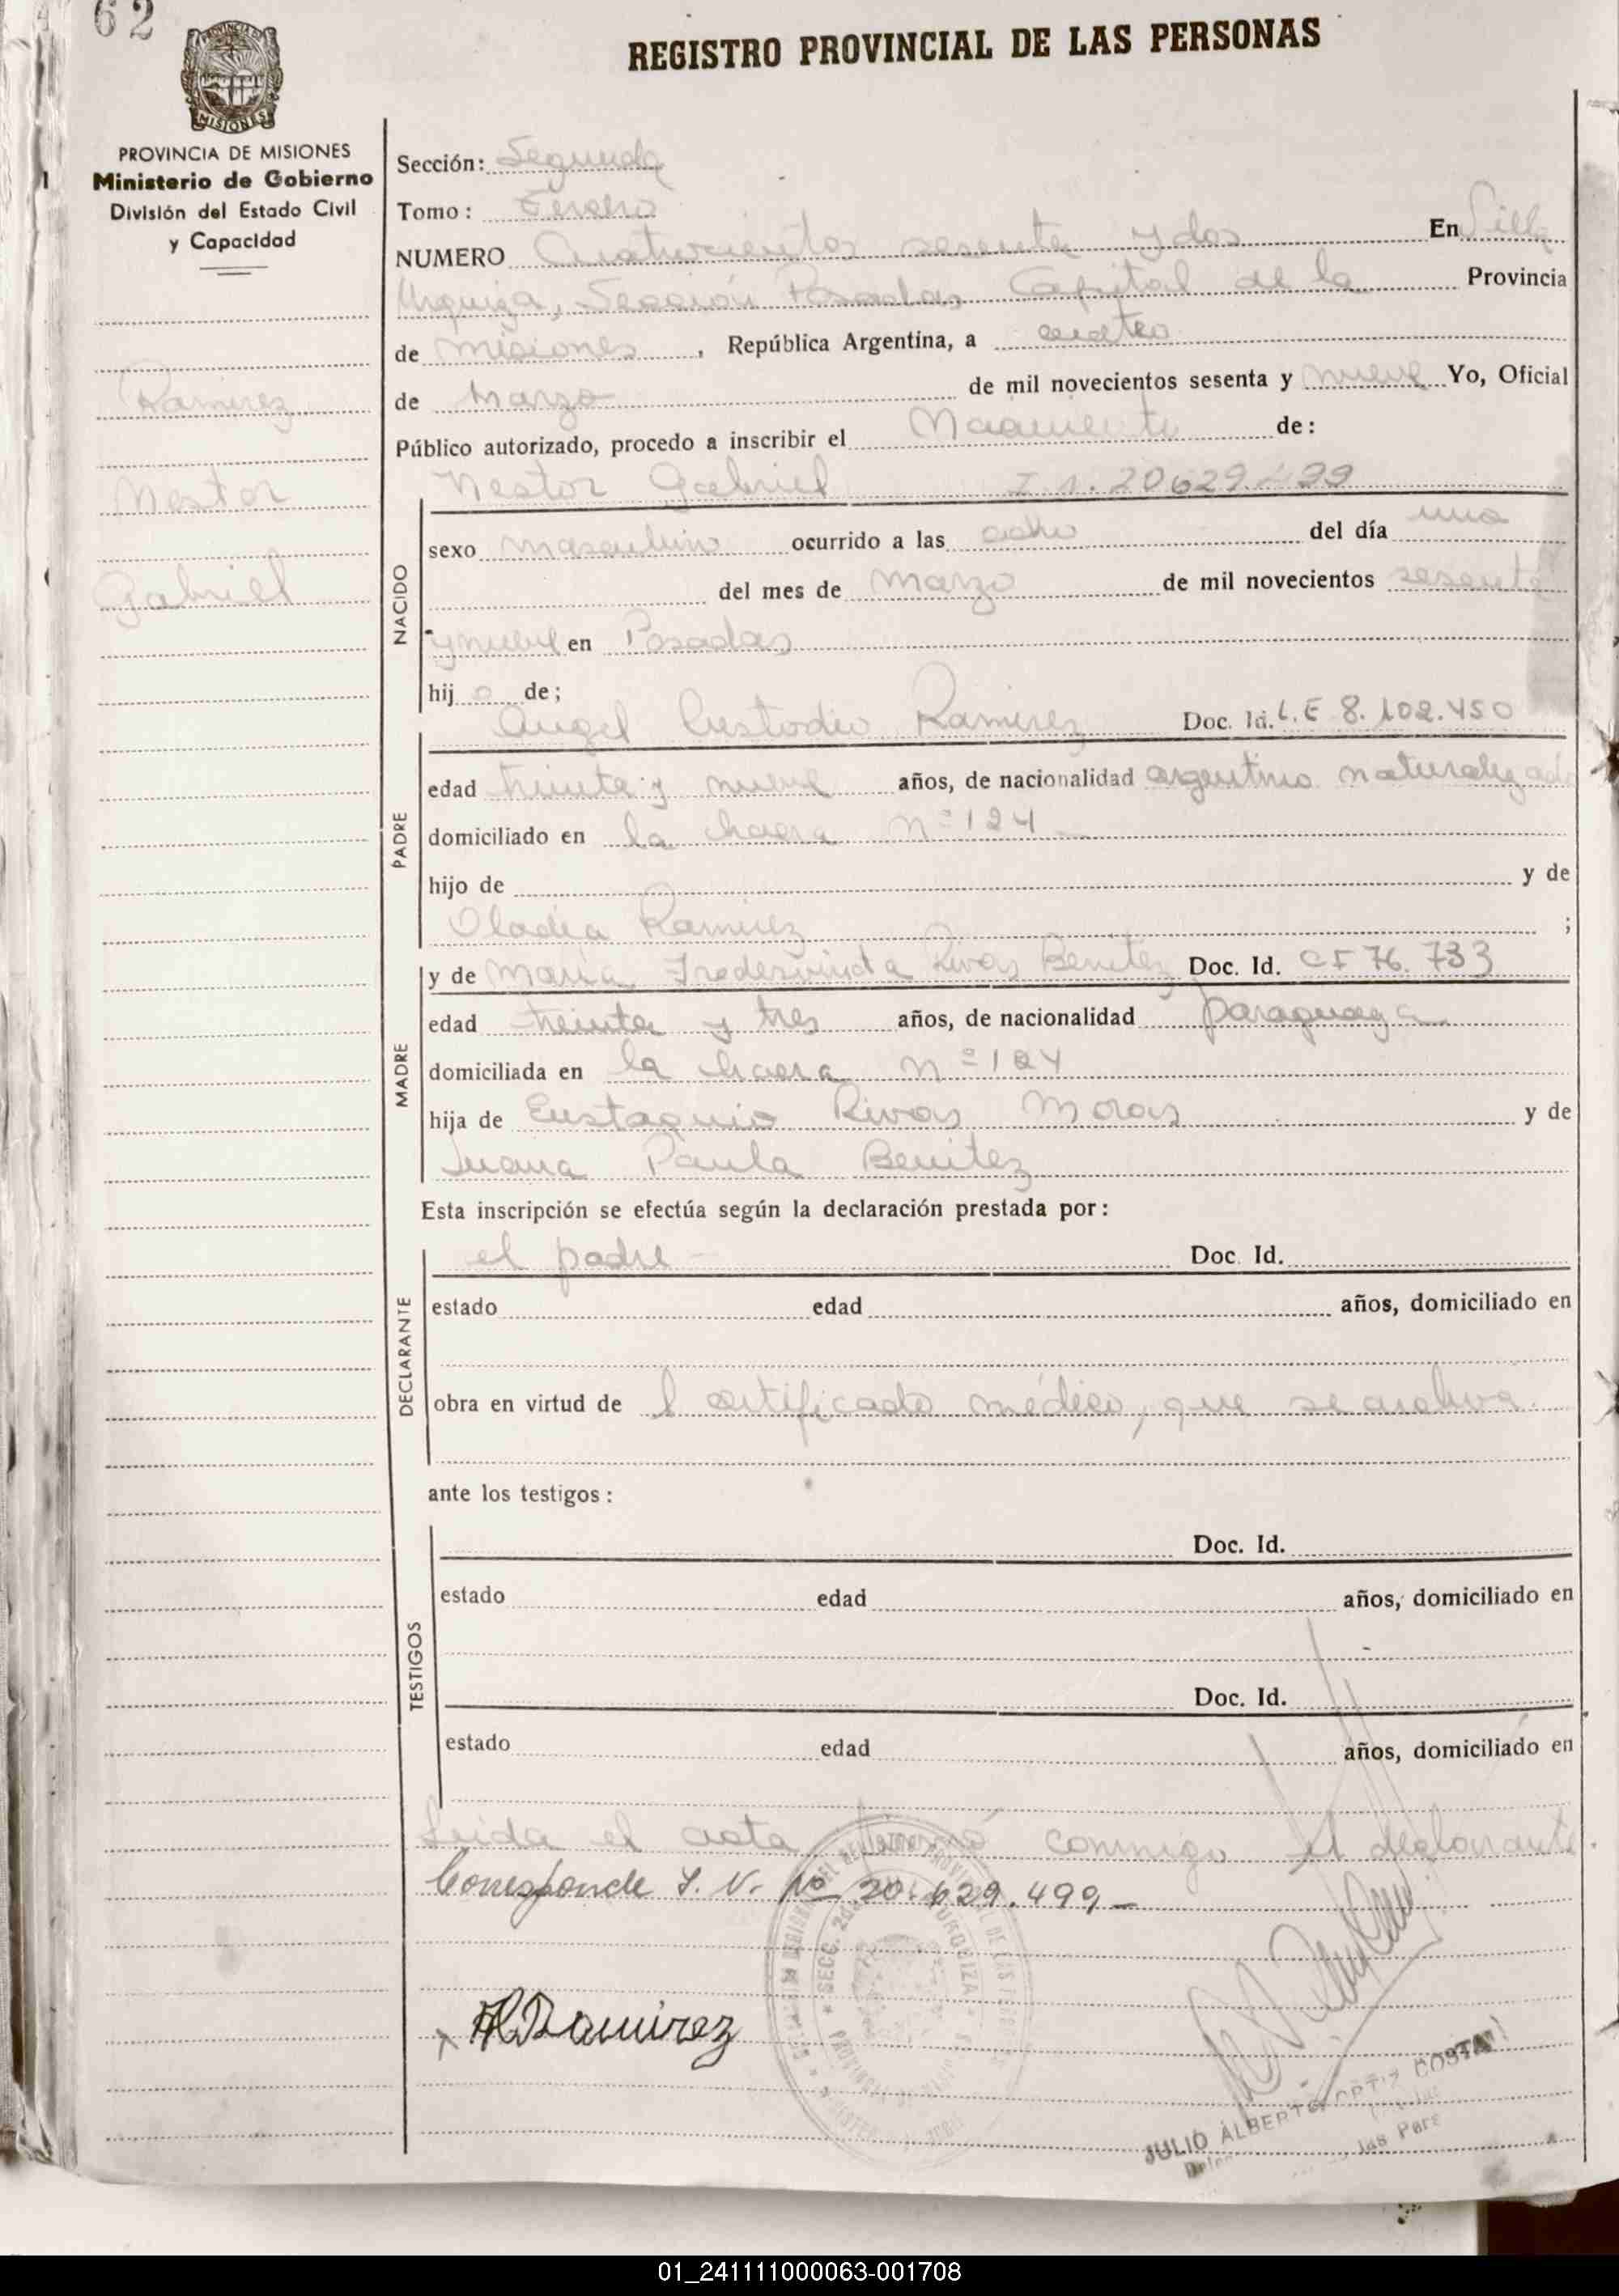 62
REGISTRO PROVINCIAL DE LAS PERSONAS
MISIONES
PROVINCIA DE MISIONES
Ministerio de Gobierno
División del Estado Civil
y Capacidad
Ramirez
Nestor
Gabriel
Sección: Segunda
Tomo: Tercero
NUMERO Cuatrocientos sesenta y dos En Villa
Urquiza, Sección Posadas Capital de la Provincia
de Misiones, República Argentina, a cuatro
de Marzo de mil novecientos sesenta y nueve Yo, Oficial
Público autorizado, procedo a inscribir el Nacimiento de:
Nestor Gabriel 20629499
NACIDO
sexo masculino ocurrido a las ocho del día uno
del mes de Marzo de mil novecientos sesenta
y nueve en Posadas
hijo de;
Angel Custodio Ramirez Doc. Id. L.E 8.102.450
PADRE
edad treinta y nueve años, de nacionalidad argentino naturalizado
domiciliado en la chacra Nº 124
hijo de y de
Oladia Ramirez ;
MADRE
y de María Fredesvinda Rivas Benitez Doc. Id. CI 76.733
edad treinta y tres años, de nacionalidad paraguaya
domiciliada en la chacra Nº 124
hija de Eustaquio Rivas Moras y de
Juana Paula Benitez
Esta inscripción se efectúa según la declaración prestada por:
DECLARANTE
el padre - Doc. Id.
estado edad años, domiciliado en
obra en virtud de l certificado médico, que se archiva.
ante los testigos:
TESTIGOS
Doc. Id.
estado edad años, domiciliado en
Doc. Id.
estado edad años, domiciliado en
Leida el acta firmó conmigo el declarante.
Corresponde I. N. Nº 20.629.499-
SECC. 2da URQUIZA
PROVINCIA DE
x Ramirez
JULIO ALBERTO ORTIZ COSTA
las Pers
01_241111000063-001708